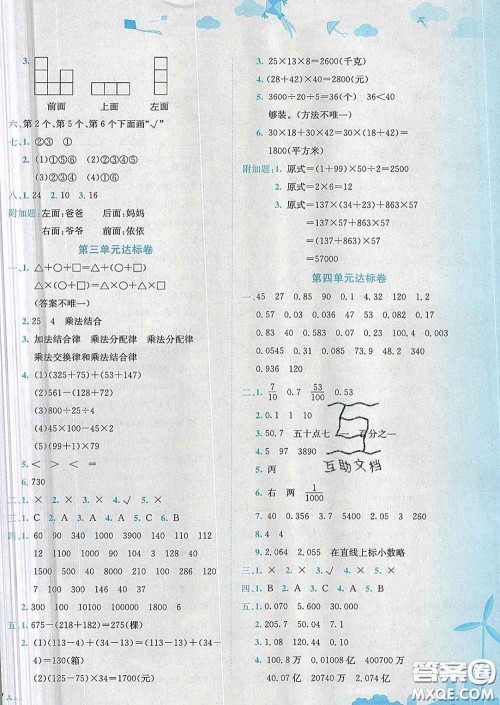 3.
前面 上面 左面
六、第2个、第5个、第6个下面画“√”
七、1. ②③ ①
2. (1)①⑤⑥ (2)①⑤⑥
(3)②③④ (4)①⑥
八、1. 24 2. 10 3. 16
附加题:左面:爸爸 后面:妈妈
右面:爷爷 前面:依依
第三单元达标卷
一、1. △+○+□=△+(○+□)
△×○×□=△×(○×□)
(答案不唯一)
2. 25 4 乘法结合
3. 加法结合律 乘法分配律 乘法分配律
乘法交换律和乘法结合律
4. (1)(325+75)+(53+147)
(2)561-(128+72)
(3)800÷25÷4
(4)45×100-45×2
5. < = < =
6. 730
二、1. × 2. × 3. × 4. √
三、1. C 2. A 3. C 4. A 5. B
四、1. 60 90 340 97 190 110 132
100 40 1000 1500 1400 1286
7800 120
2. 300 10000 1800 16 8800 128
五、1. 675-(218+182)=275(棵)
2. (1)(113-4)+(34-13)=(113-13)+
(34-4)=130(箱)
(2)(125-75)×34=1700(元)
3. 25×13×8=2600(千克)
4. (28+42)×40=2800(元)
5. 3600÷20÷5=36(个) 36<40
够装。(方法不唯一)
6. 30×18+30×42=30×(18+42)=
1800(平方米)
附加题:1. 原式=(1+99)×50÷2=2500
2. 原式=2×6=12
3. 原式=137×(34+23)+863×57
=137×57+863×57
=(137+863)×57
=57000
第四单元达标卷
一、45 27 0.85 90.1 4.32 120 1.6
0.03 0.43 0.037 5.8 9.4 1.9
8.4 0.065 0.33 74.9 0.048 10
0.936 120
二、1. 7/10 0.7 53/100 0.53
2. 0.01 10 24
3. 50.7 五十点七 一 百分之一
4. 5 97 3890
5. 丙
6. 右 两 1/1000
7. 40 0.356 3.045 7 85 0.295
8. 4 4
9. 2.06 2.055 在直线上标小数略
三、1. × 2. × 3. √ 4. × 5. √
四、1. B 2. C 3. C 4. A 5. A
五、1. 0.070 5.000 30.080
2. 205.7 50.04 0.008
3.
4. 100.8万 0.01亿 400700万
200010万 10.04亿 20.07亿
互助文档
答案圈
MXQE.COM